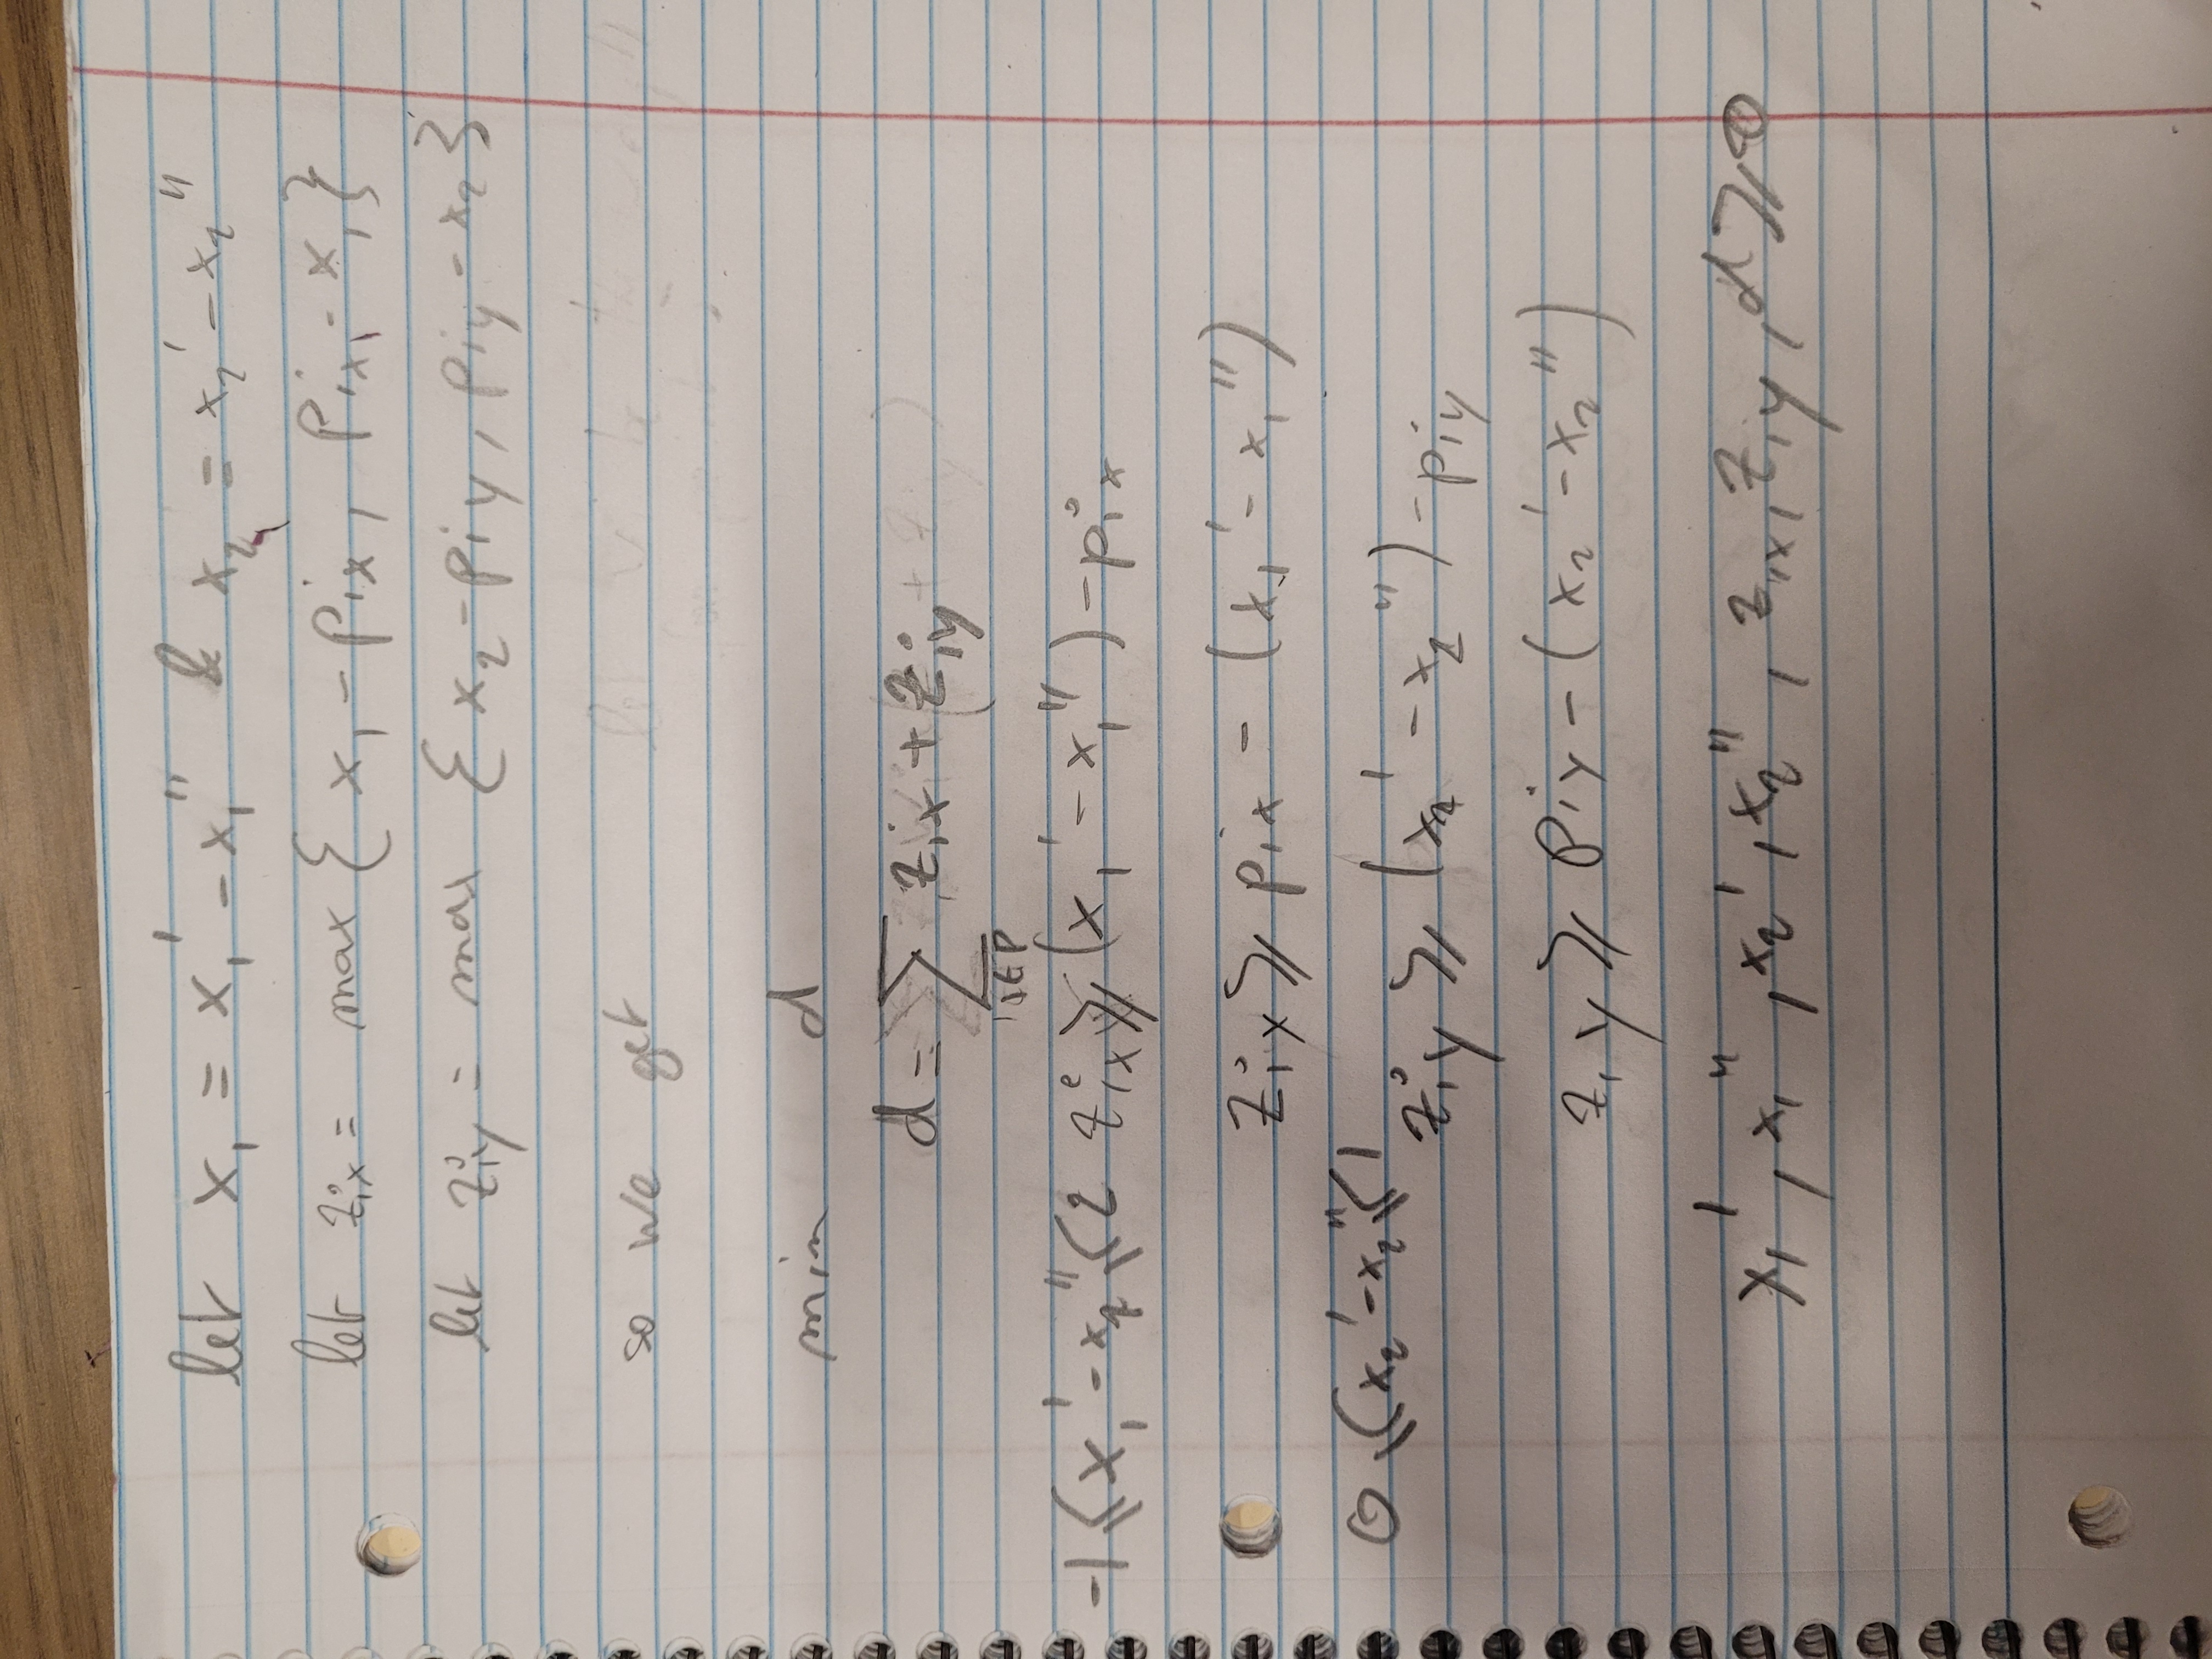 let x₁ = x₁' - x₁'' & x₂ = x₂' - x₂''
let zᵢₓ = max { x₁ - pᵢₓ, pᵢₓ - x₁ }
let zᵢᵧ = max { x₂ - pᵢᵧ, pᵢᵧ - x₂ }
so we get
min d
d = ∑ zᵢₓ + zᵢᵧ
i∈P
-1 ⩽ x₁' - x₂'' ⩽ 2 zᵢₓ ⩾ (x₁' - x₁'') - pᵢₓ
zᵢₓ ⩾ pᵢₓ - (x₁' - x₁'')
0 ⩽ x₂' - x₂'' ⩽ 1
zᵢᵧ ⩾ (x₂' - x₂'') - pᵢᵧ
zᵢᵧ ⩾ pᵢᵧ - (x₂' - x₂'')
x₁', x₁'', x₂', x₂'', zᵢₓ, zᵢᵧ, d ⩾ 0